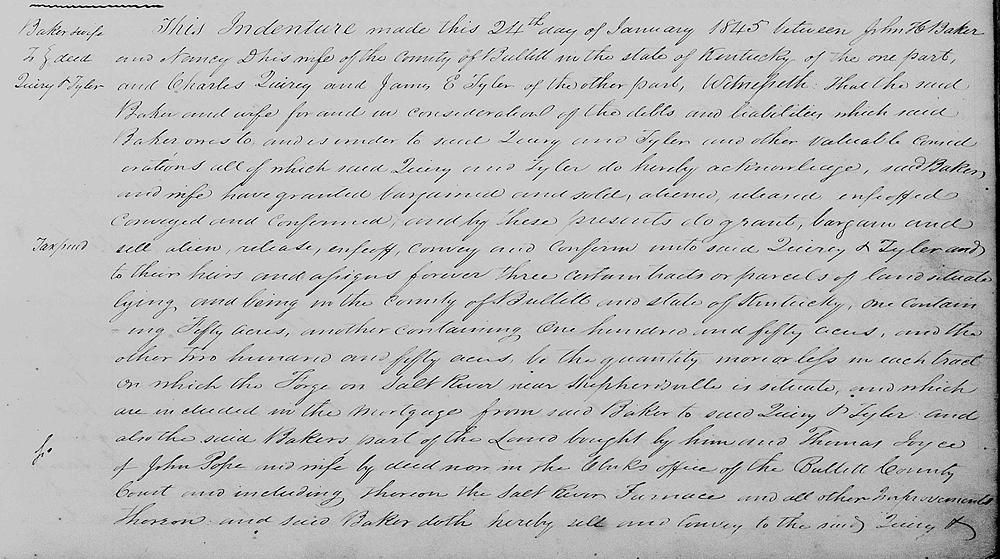 Baker & wife
To } deed
Quirey & Tyler
Tax paid
This Indenture made this 24th day of January 1845 between John H Baker
and Nancy D his wife of the County of Bullitt in the state of Kentucky of the one part,
and Charles Quirey and James E Tyler of the other part, Witnesseth: That the said
Baker and wife for and in consideration of the debts and liabilities which said
Baker owes to, and is under to said Quirey and Tyler and other valuable consid
erations all of which said Quirey and Tyler do hereby acknowledge, said Baker
and wife have granted bargained and sold, aliened, released enfeoffed
Conveyed and Confirmed, and by these presents do grant, bargain and
sell alien, release, enfeoff, Convey and Confirm unto said Quirey & Tyler and
to their heirs and assigns forever three certain tracts or parcels of land situate
lying and being in the County of Bullitt and state of Kentucky, one contain
-ing Fifty acres, another containing One hundred and fifty acres, and the
other Two hundred and fifty acres, be the quantity more or less in each tract
on which the Forge on Salt River near Shepherdsville is situate, and which
are included in the mortgage from said Baker to said Quirey & Tyler and
also the said Bakers part of the Land bought by him and Thomas Joyce
of John Pope and wife by deed now in the Clerks office of the Bullitt County
Court and including thereon the Salt River Furnace and all other Improvements
thereon and said Baker doth hereby sell and Convey to the said Quirey &